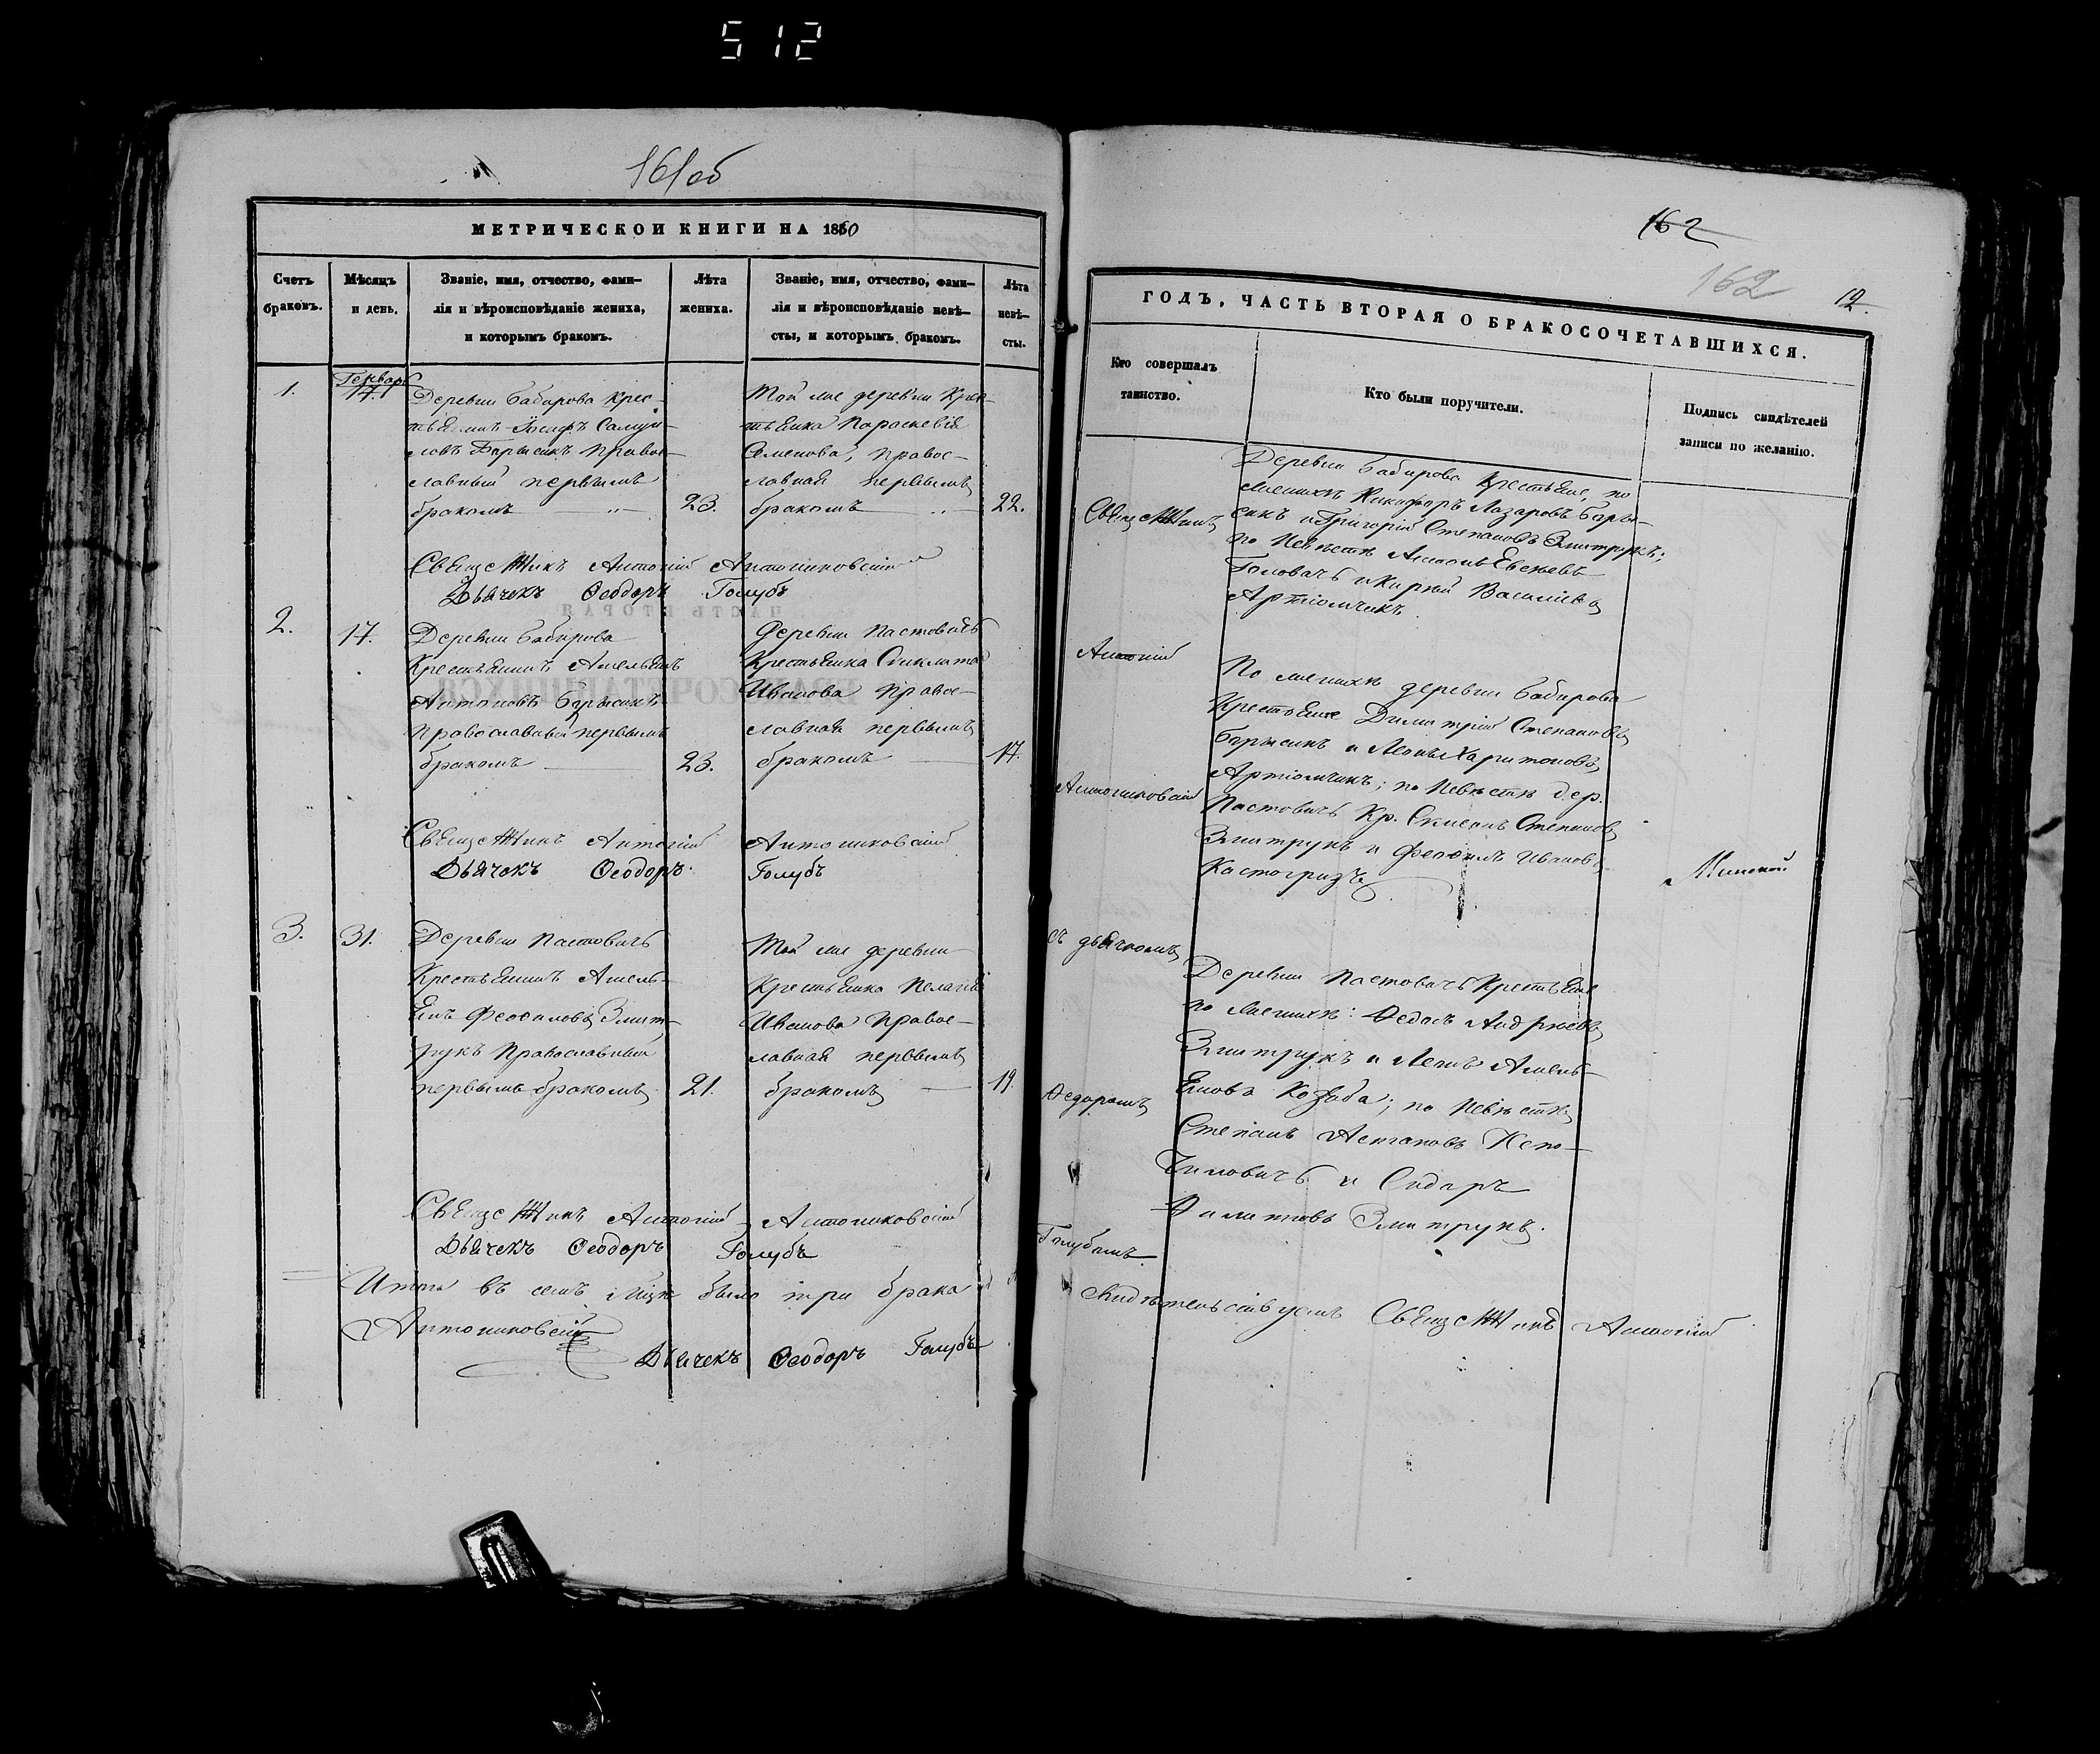 512
161об
МЕТРИЧЕСКОЙ КНИГИ НА 1860
Счетъ браковъ.
Мѣсяцъ и день.
Званіе, имя, отчество, фами-
лія и вѣроисповѣданіе жениха,
и которымъ бракомъ.
Лѣта
жениха.
Званіе, имя, отчество, фами-
лія и вѣроисповѣданіе невѣ-
сты, и которымъ бракомъ.
Лѣта
невѣ-
сты.
1.
Генварь
17.
Деревни Бабирова крес-
тьянинъ Іосифъ Самуи-
ловъ Барысикъ правос-
лавный первымъ
бракомъ
23.
Той же деревни Крес-
тьянка Параскевія
Семенова, правос-
лавная первымъ
бракомъ
22.
Священникъ Антоній Антониковскій
Дьячекъ Ѳеодоръ Голубъ
2.
17.
Деревни Бабирова
Крестьянинъ Амельянъ
Антоновъ Барысикъ
православный первымъ
бракомъ
23.
Деревни Пастовичь
Крестьянка
Иванова правос-
лавная первымъ
бракомъ
17.
Священникъ Антоній Антониковскій
Дьячекъ Ѳеодоръ Голубъ
3.
31.
Деревни Пастовичь
Крестьянинъ Амель-
янъ Змит-
рукъ Православный
первымъ бракомъ
21.
Той же деревни
Крестьянка Пелагія
Иванова правос-
лавная первымъ
бракомъ
19
Священникъ Антоній Антониковскій
Дьячекъ Ѳеодоръ Голубъ
Итого въ семъ м҃цѣ было три брака
Антониковскій
Дьячекъ Ѳеодоръ Голубъ
162
162
12.
ГОДЪ, ЧАСТЬ ВТОРАЯ О БРАКОСОЧЕТАВШИХСЯ.
Кто совершалъ
таинство.
Кто были поручители.
Подпись свидѣтелей
записи по желанію.
Священникъ
Антоній
Антониковскій
съ дьячкомъ
Ѳедоромъ
Голубомъ
Деревни Бабирова Крестьяне, по
женихѣ Никифоръ Лазаровъ Бары-
сикъ и Григорій Степановъ Змитрукъ;
по Невѣстѣ Антонъ
Головачь и Кирѣй Васильевъ
Артіомчикъ.
По женихѣ деревни Бабирова
Крестьяне Димитрій Степановъ
Барысикъ и Леонъ Харитоновъ
Артіомчикъ; по Невѣстѣ дер.
Пастовичь Кр. Степановъ
Змитрукъ и Ивановъ
Костогризъ
Деревни Пастовичь Крестьяне
по женихѣ: Ѳедоръ Андреевъ
Змитрукъ и Амель-
яновъ Козаба; по Невѣстѣ
Степанъ
и Сидоръ
Филиповъ Змитрукъ.
Свидѣтельствуемъ Священникъ Антоній